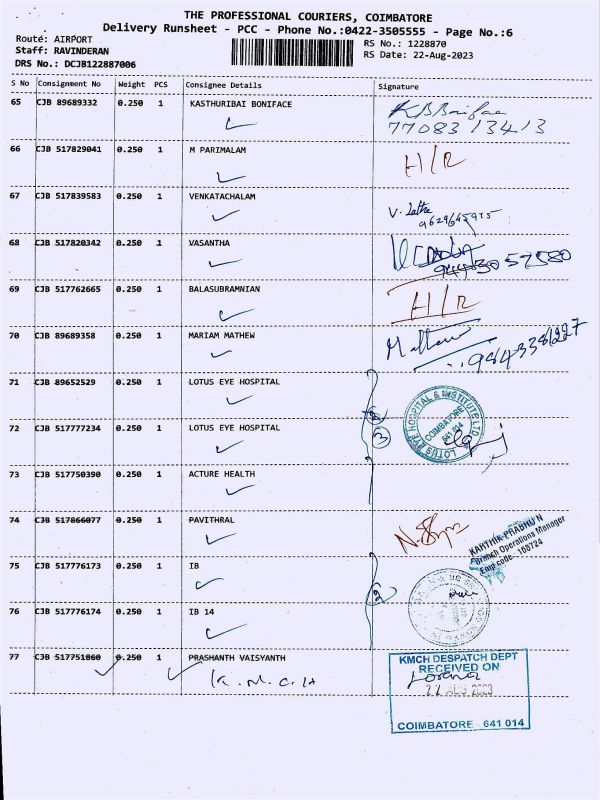 THE PROFESSIONAL COURIERS, COIMBATORE
Delivery Runsheet - PCC - Phone No.:0422-3505555 - Page No.:6
Route: AIRPORT
Staff: RAVINDERAN
DRS No.: DCJB122887006
RS No.: 1228870
RS Date: 22-Aug-2023
S No Consignment No Weight PCS Consignee Details Signature
65 CJB 89689332 0.250 1 KASTHURIBAI BONIFACE KBBoniface
77083 13413
66 CJB 517829041 0.250 1 M PARIMALAM H/R
67 CJB 517839583 0.250 1 VENKATACHALAM V. Latha
68 CJB 517820342 0.250 1 VASANTHA
69 CJB 517762665 0.250 1 BALASUBRAMNIAN H/R
70 CJB 89689358 0.250 1 MARIAM MATHEW
71 CJB 89652529 0.250 1 LOTUS EYE HOSPITAL
72 CJB 517777234 0.250 1 LOTUS EYE HOSPITAL
3
LOTUS EYE HOSPITAL & INSTITUTE LTD
COIMBATORE
641 014
73 CJB 517750390 0.250 1 ACTURE HEALTH
74 CJB 517866077 0.250 1 PAVITHRAL
KARTHIK PRABHU N
Branch Operations Manager
Emp code - 160724
75 CJB 517776173 0.250 1 IB
2
76 CJB 517776174 0.250 1 IB 14
77 CJB 517751860 0.250 1 PRASHANTH VAISYANTH
K.M.C.H
KMCH DESPATCH DEPT
RECEIVED ON
22 AUG 2023
COIMBATORE - 641 014